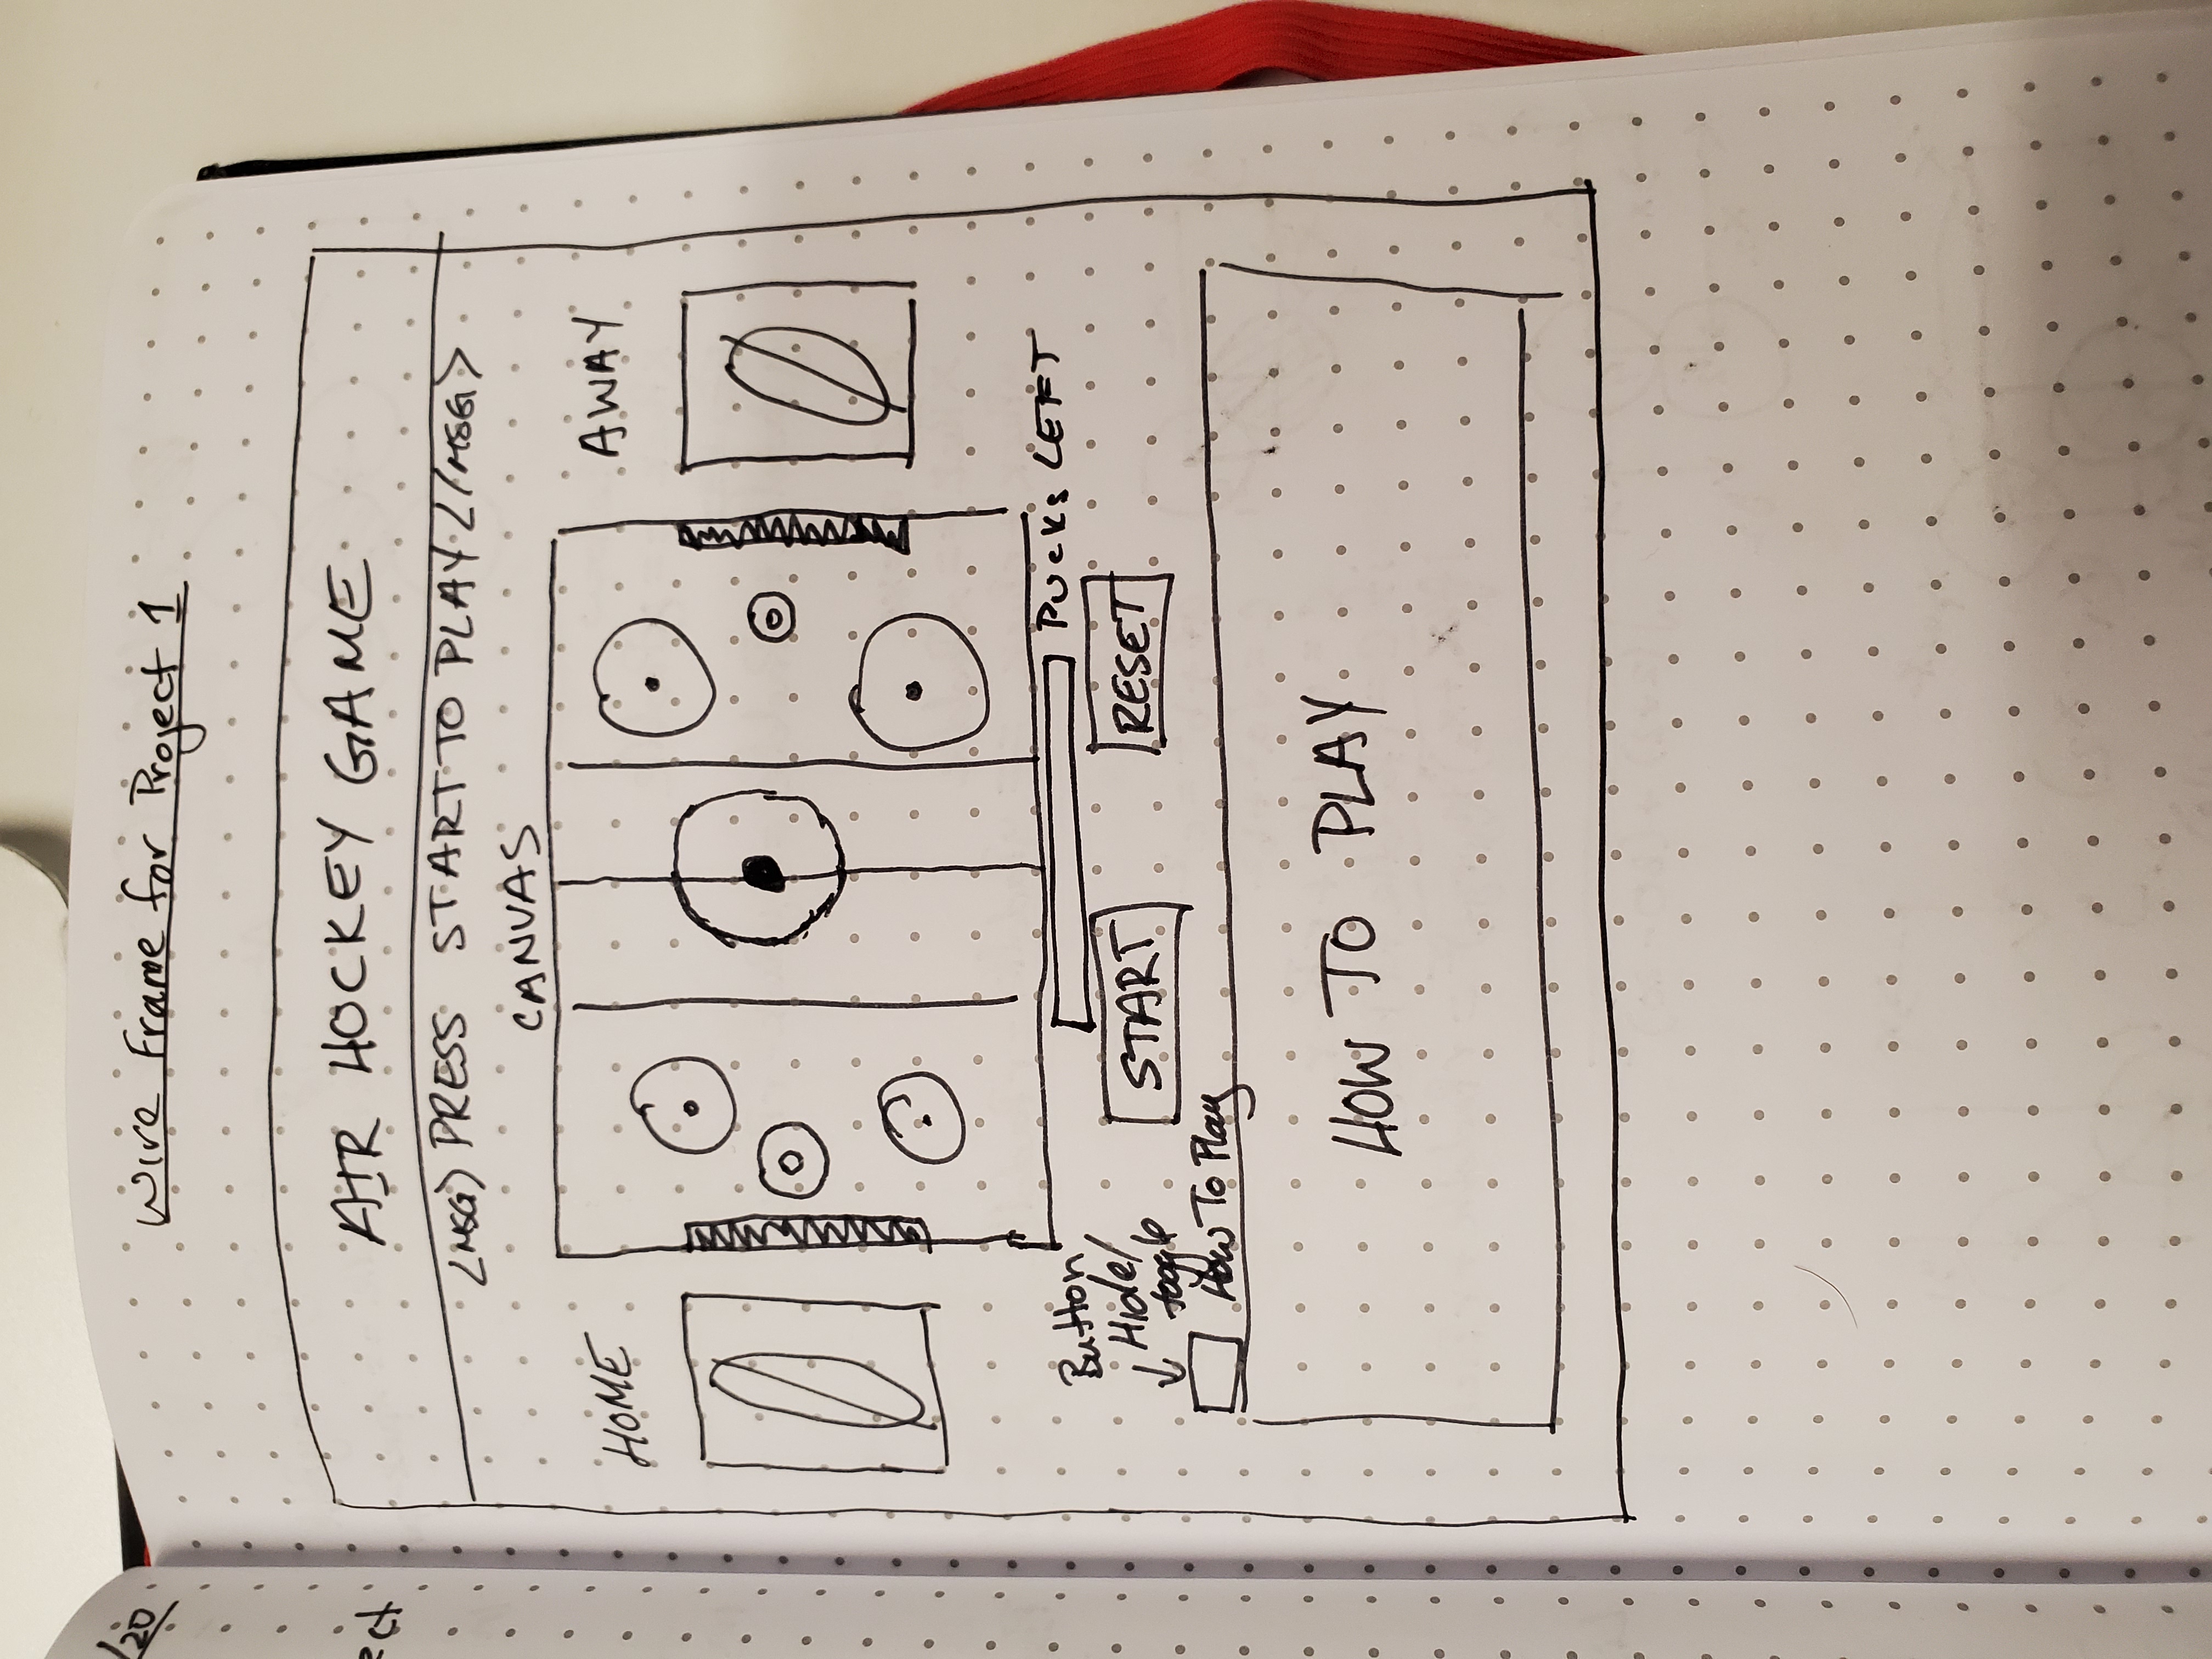 /20
ect
Wire Frame for Project 1
AIR HOCKEY GAME
<MSG> PRESS START TO PLAY </MSG>
CANVAS
HOME
AWAY
0
0
PUCKS LEFT
Button
Hide/
toggle
START
RESET
How To Play
HOW TO PLAY